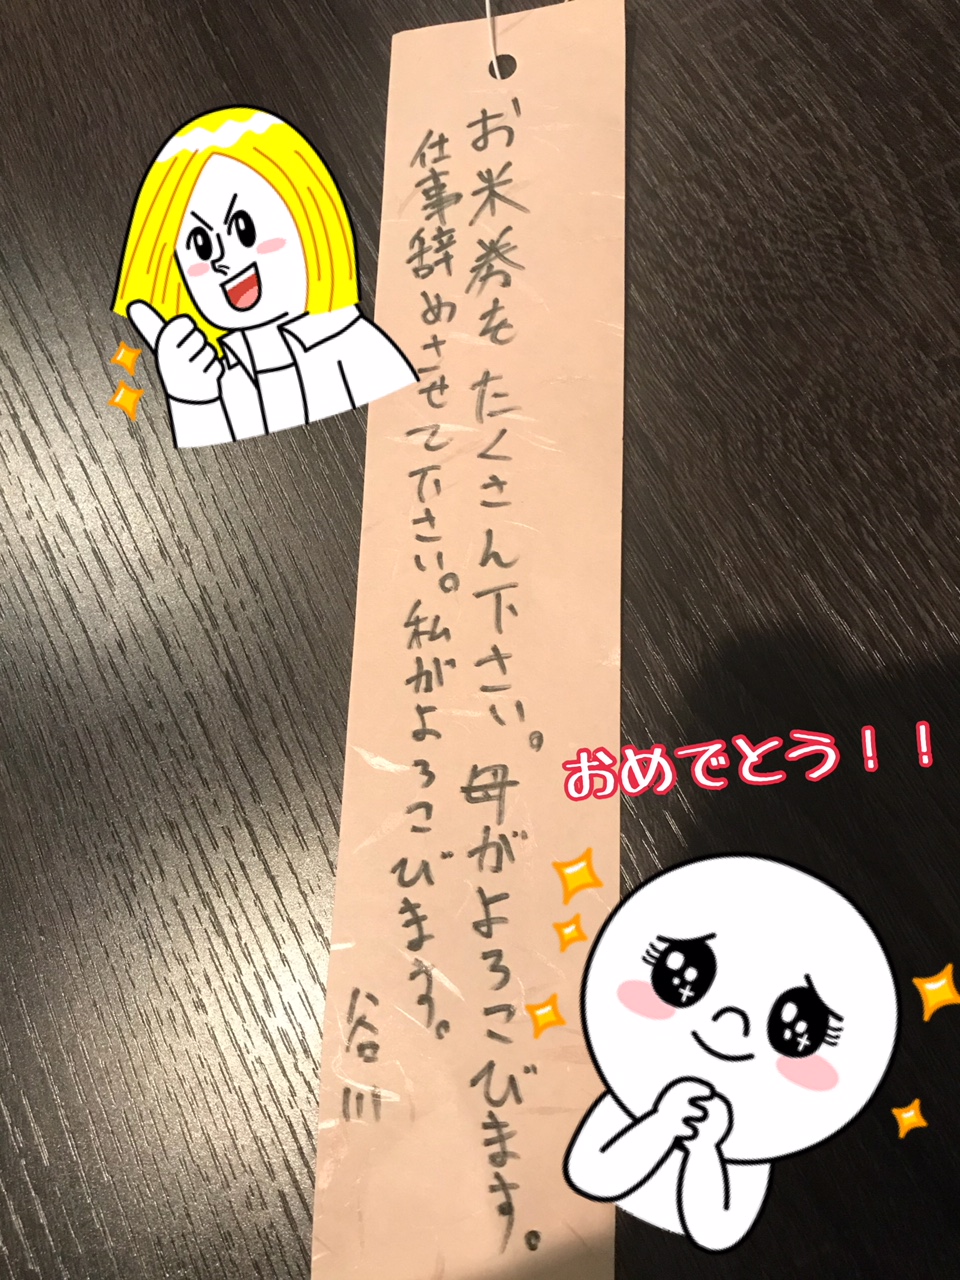 お米券を たくさん下さい。母がよろこびます。
仕事辞めさせて下さい。私がよろこびます。
谷川
おめでとう！！